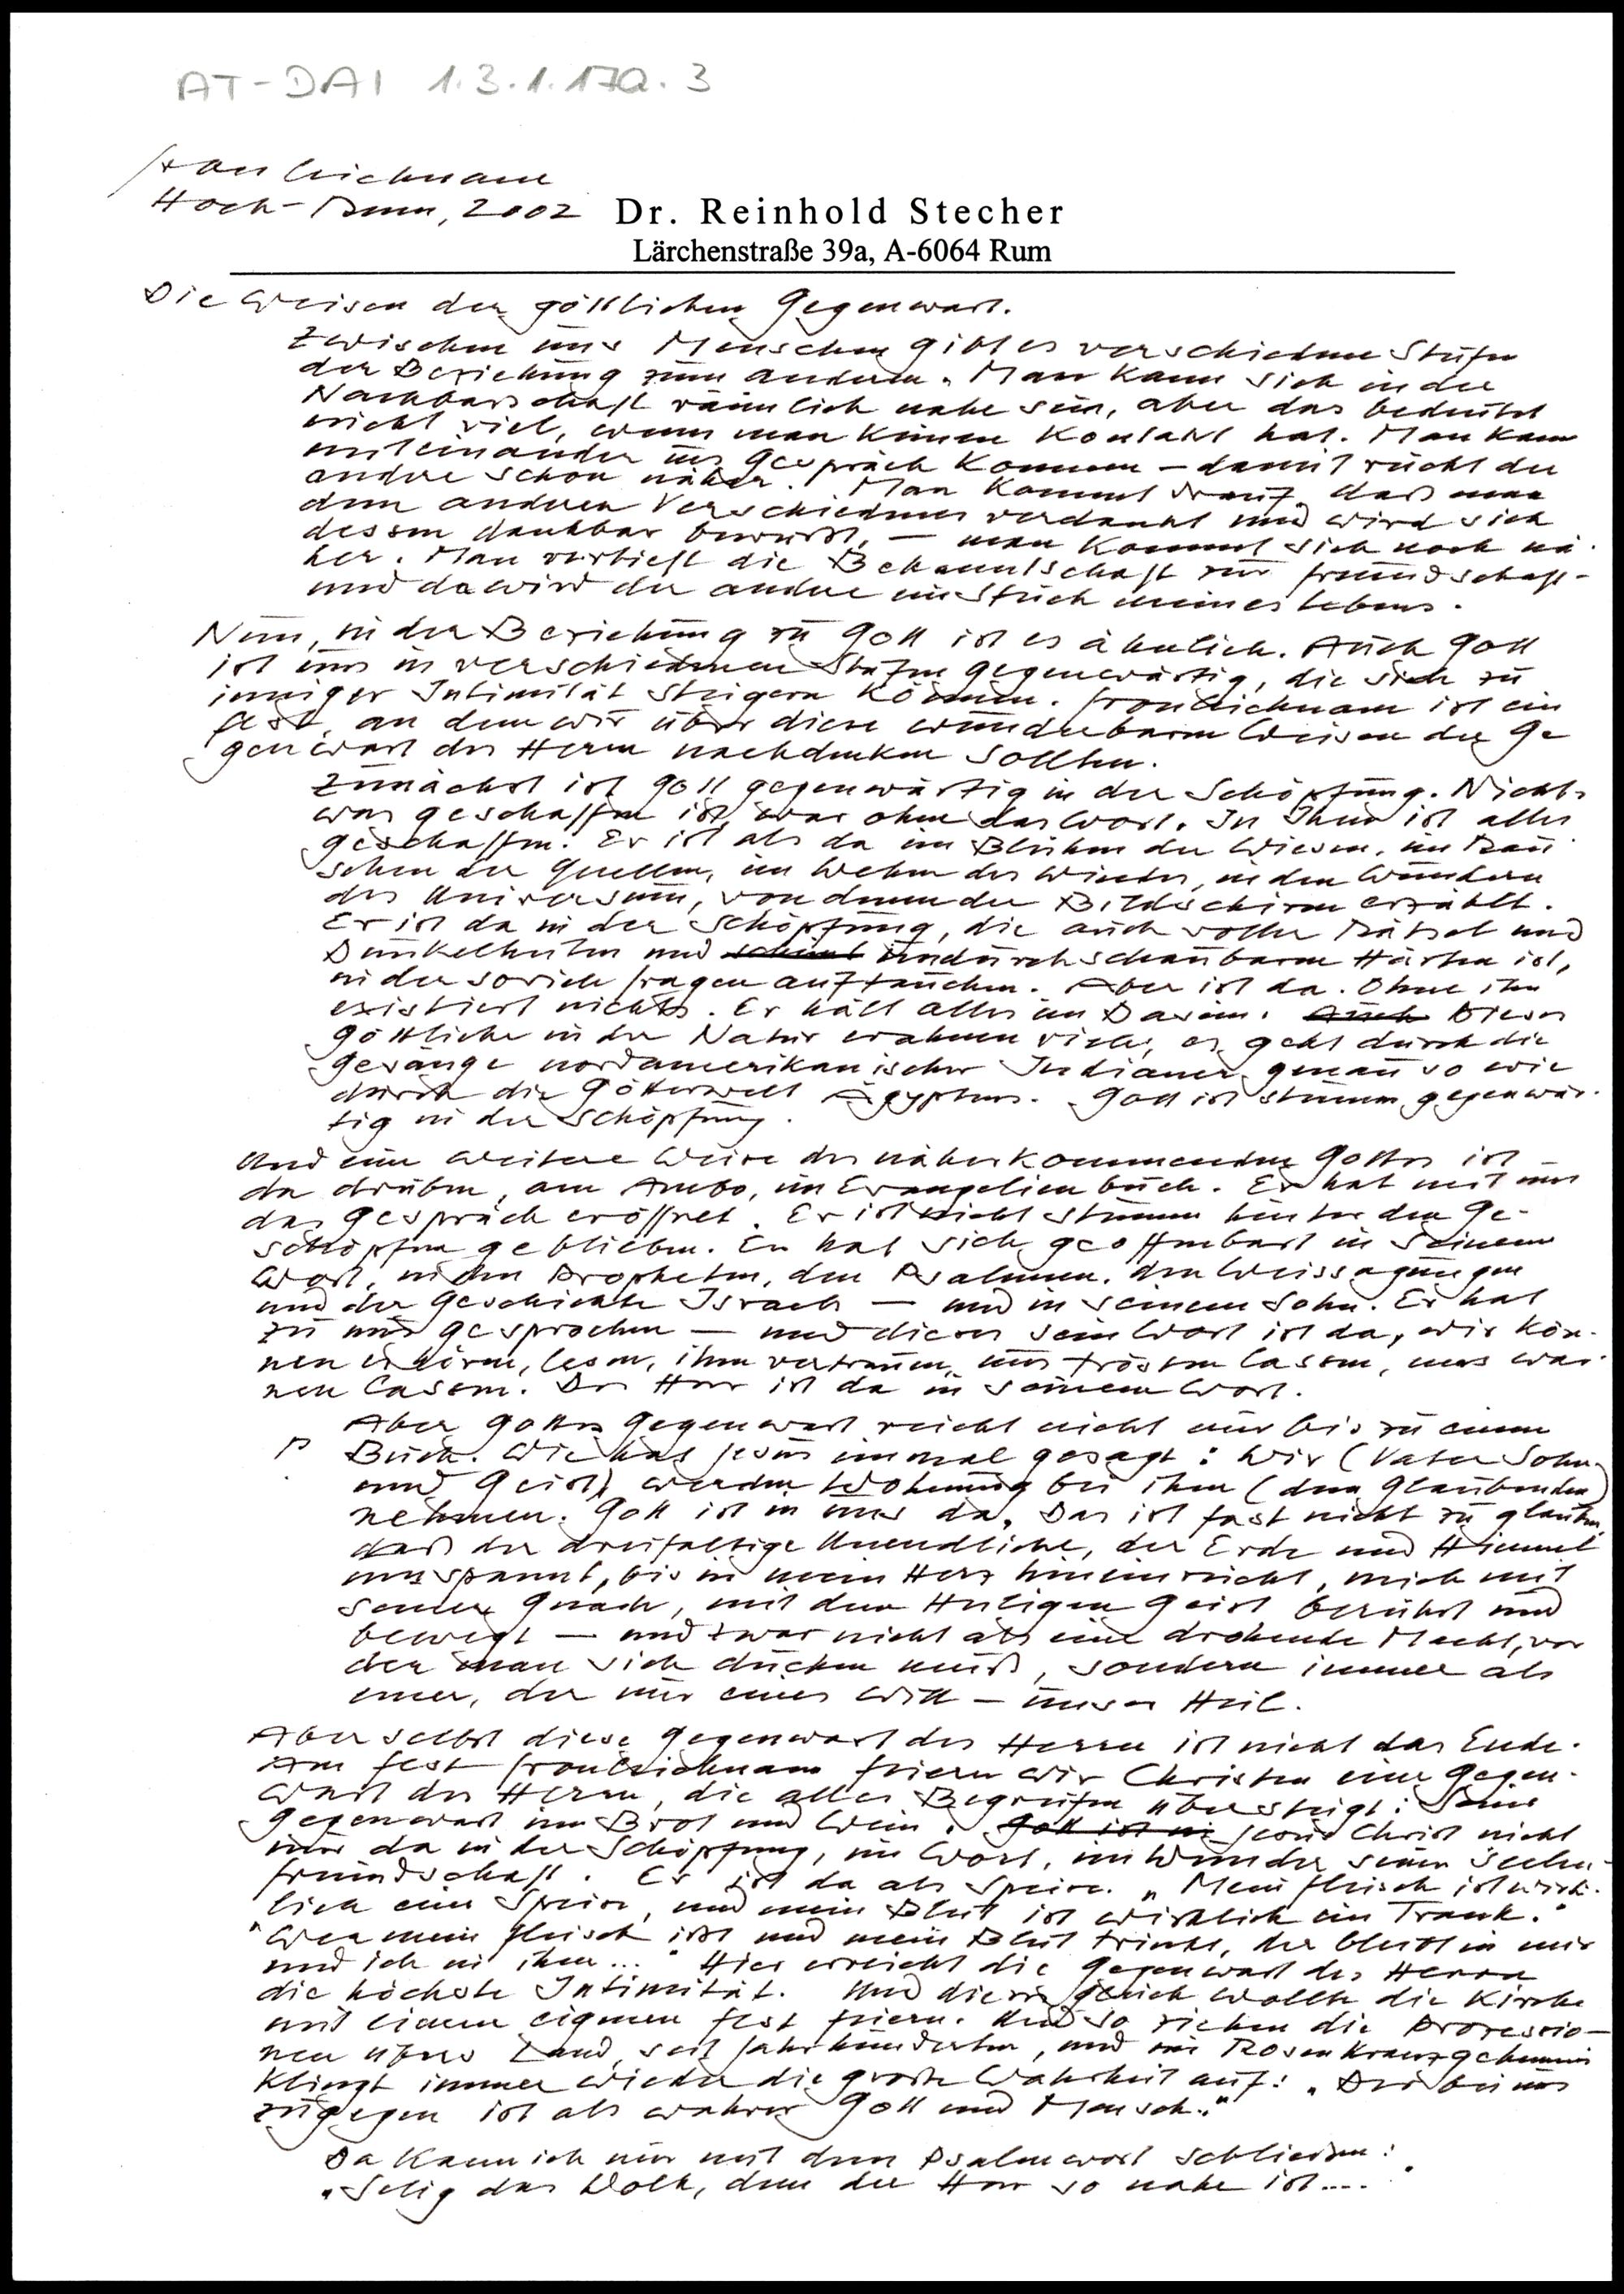 AT-DAI 1.3.1.170.3
Fronleichnam
Hoch-Rum, 2002
Dr. Reinhold Stecher
Lärchenstraße 39a, A-6064 Rum
Die Weisen der göttlichen Gegenwart.
Zwischen uns Menschen gibt es verschiedene Stufen
der Beziehung zum anderen. Man kann sich in der
Nachbarschaft räumlich nahe sein, aber das bedeutet
nicht viel, wenn man keinen Kontakt hat. Man kann
miteinander ins Gespräch kommen – damit rückt der
andre schon näher. Man kommt drauf, daß man
dem anderen Verschiedenes verdankt und wird sich
dessen dankbar bewußt, – man kommt sich noch nä-
her. Man vertieft die Bekanntschaft zur Freundschaft –
und da wird der andere ein Stück meines Lebens.
Nun, in der Beziehung zu Gott ist es ähnlich. Auch Gott
ist uns in verschiedenen Stufen gegenwärtig, die sich zu
inniger Intimität steigern können. Fronleichnam ist ein
Fest, an dem wir über diese wunderbaren Weisen der Ge
genwart des Herrn nachdenken sollten.
Zunächst ist Gott gegenwärtig in der Schöpfung. Nichts
was geschaffen ist, war ohne das Wort. In Ihm ist alles
geschaffen. Er ist als da im Blühen der Wiesen, im Rau
schen der Quellen, im Wehen des Windes, in den Wundern
des Universums, von denen der Bildschirm erzählt.
Er ist da in der Schöpfung, die auch voller Rätsel und
Dunkelheiten und scheint undurchschaubaren Härten ist,
in der soviele Fragen auftauchen. Aber ist da. Ohne ihn
existiert nichts. Er hält alles im Dasein. Auch Dieses
Göttliche in der Natur erahnen viele, es geht durch die
Gesänge nordamerikanischer Indianer genau so wie
durch die Götterwelt Ägyptens. Gott ist stumm gegenwär-
tig in der Schöpfung.
Und eine weitere Weise des näherkommenden Gottes ist
da drüben, am Ambo, im Evangelienbuch. Er hat mit uns
das Gespräch eröffnet. Er ist nicht stumm hinter den Ge-
schöpfen geblieben. Er hat sich geoffenbart in seinem
Wort, in den Propheten, den Psalmen, den Weissagungen
und der Geschichte Israels – und in seinem Sohn. Er hat
zu uns gesprochen – und dieses sein Wort ist da, wir kön-
nen es hören, lesen, ihm vertrauen, uns trösten lassen, uns war-
nen lassen. Der Herr ist da in seinem Wort.
Aber Gottes Gegenwart reicht nicht nur bis zu einem
Buch. Wie hat Jesus einmal gesagt: Wir (Vater Sohn
und Geist) werden Wohnung bei ihm (dem Glaubenden)
nehmen. Gott ist in uns da. Das ist fast nicht zu glauben,
daß der dreifaltige Unendliche, der Erde und Himmel
umspannt, bis in mein Herz hineinreicht, mich mit
seiner Gnade, mit dem Heiligen Geist berührt und
bewegt – und zwar nicht als eine drohende Macht, vor
der man sich ducken muß, sondern immer als
einer, der nur eines will – unser Heil.
Aber selbst diese Gegenwart des Herrn ist nicht das Ende.
Am Fest Fronleichnam feiern wir Christen eine Gegen-
wart des Herrn, die alles Begreifen übersteigt: Seine
Gegenwart im Brot und Wein. Gott ist in Jesus Christ nicht
nur da in der Schöpfung, im Wort, im Wunder seiner Seelen-
freundschaft. Er ist da als Speise. „Mein Fleisch ist wirk-
lich eine Speise, und mein Blut ist wirklich ein Trank."
"Wer mein Fleisch ißt und mein Blut trinkt, der bleibt in mir
und ich in ihm..." Hier erreicht die Gegenwart des Herrn
die höchste Intimität. Und dieses wollte die Kirche
mit einem eigenen Fest feiern. Und so ziehen die Prozessio-
nen übers Land, seit Jahrhunderten, und im Rosenkranzgeheimnis
klingt immer wieder die große Wahrheit auf: „Der bei uns
zugegen ist als wahrer Gott und Mensch."
Da kann ich nur mit dem Psalmwort schließen:
„Selig das Volk, dem der Herr so nahe ist...."